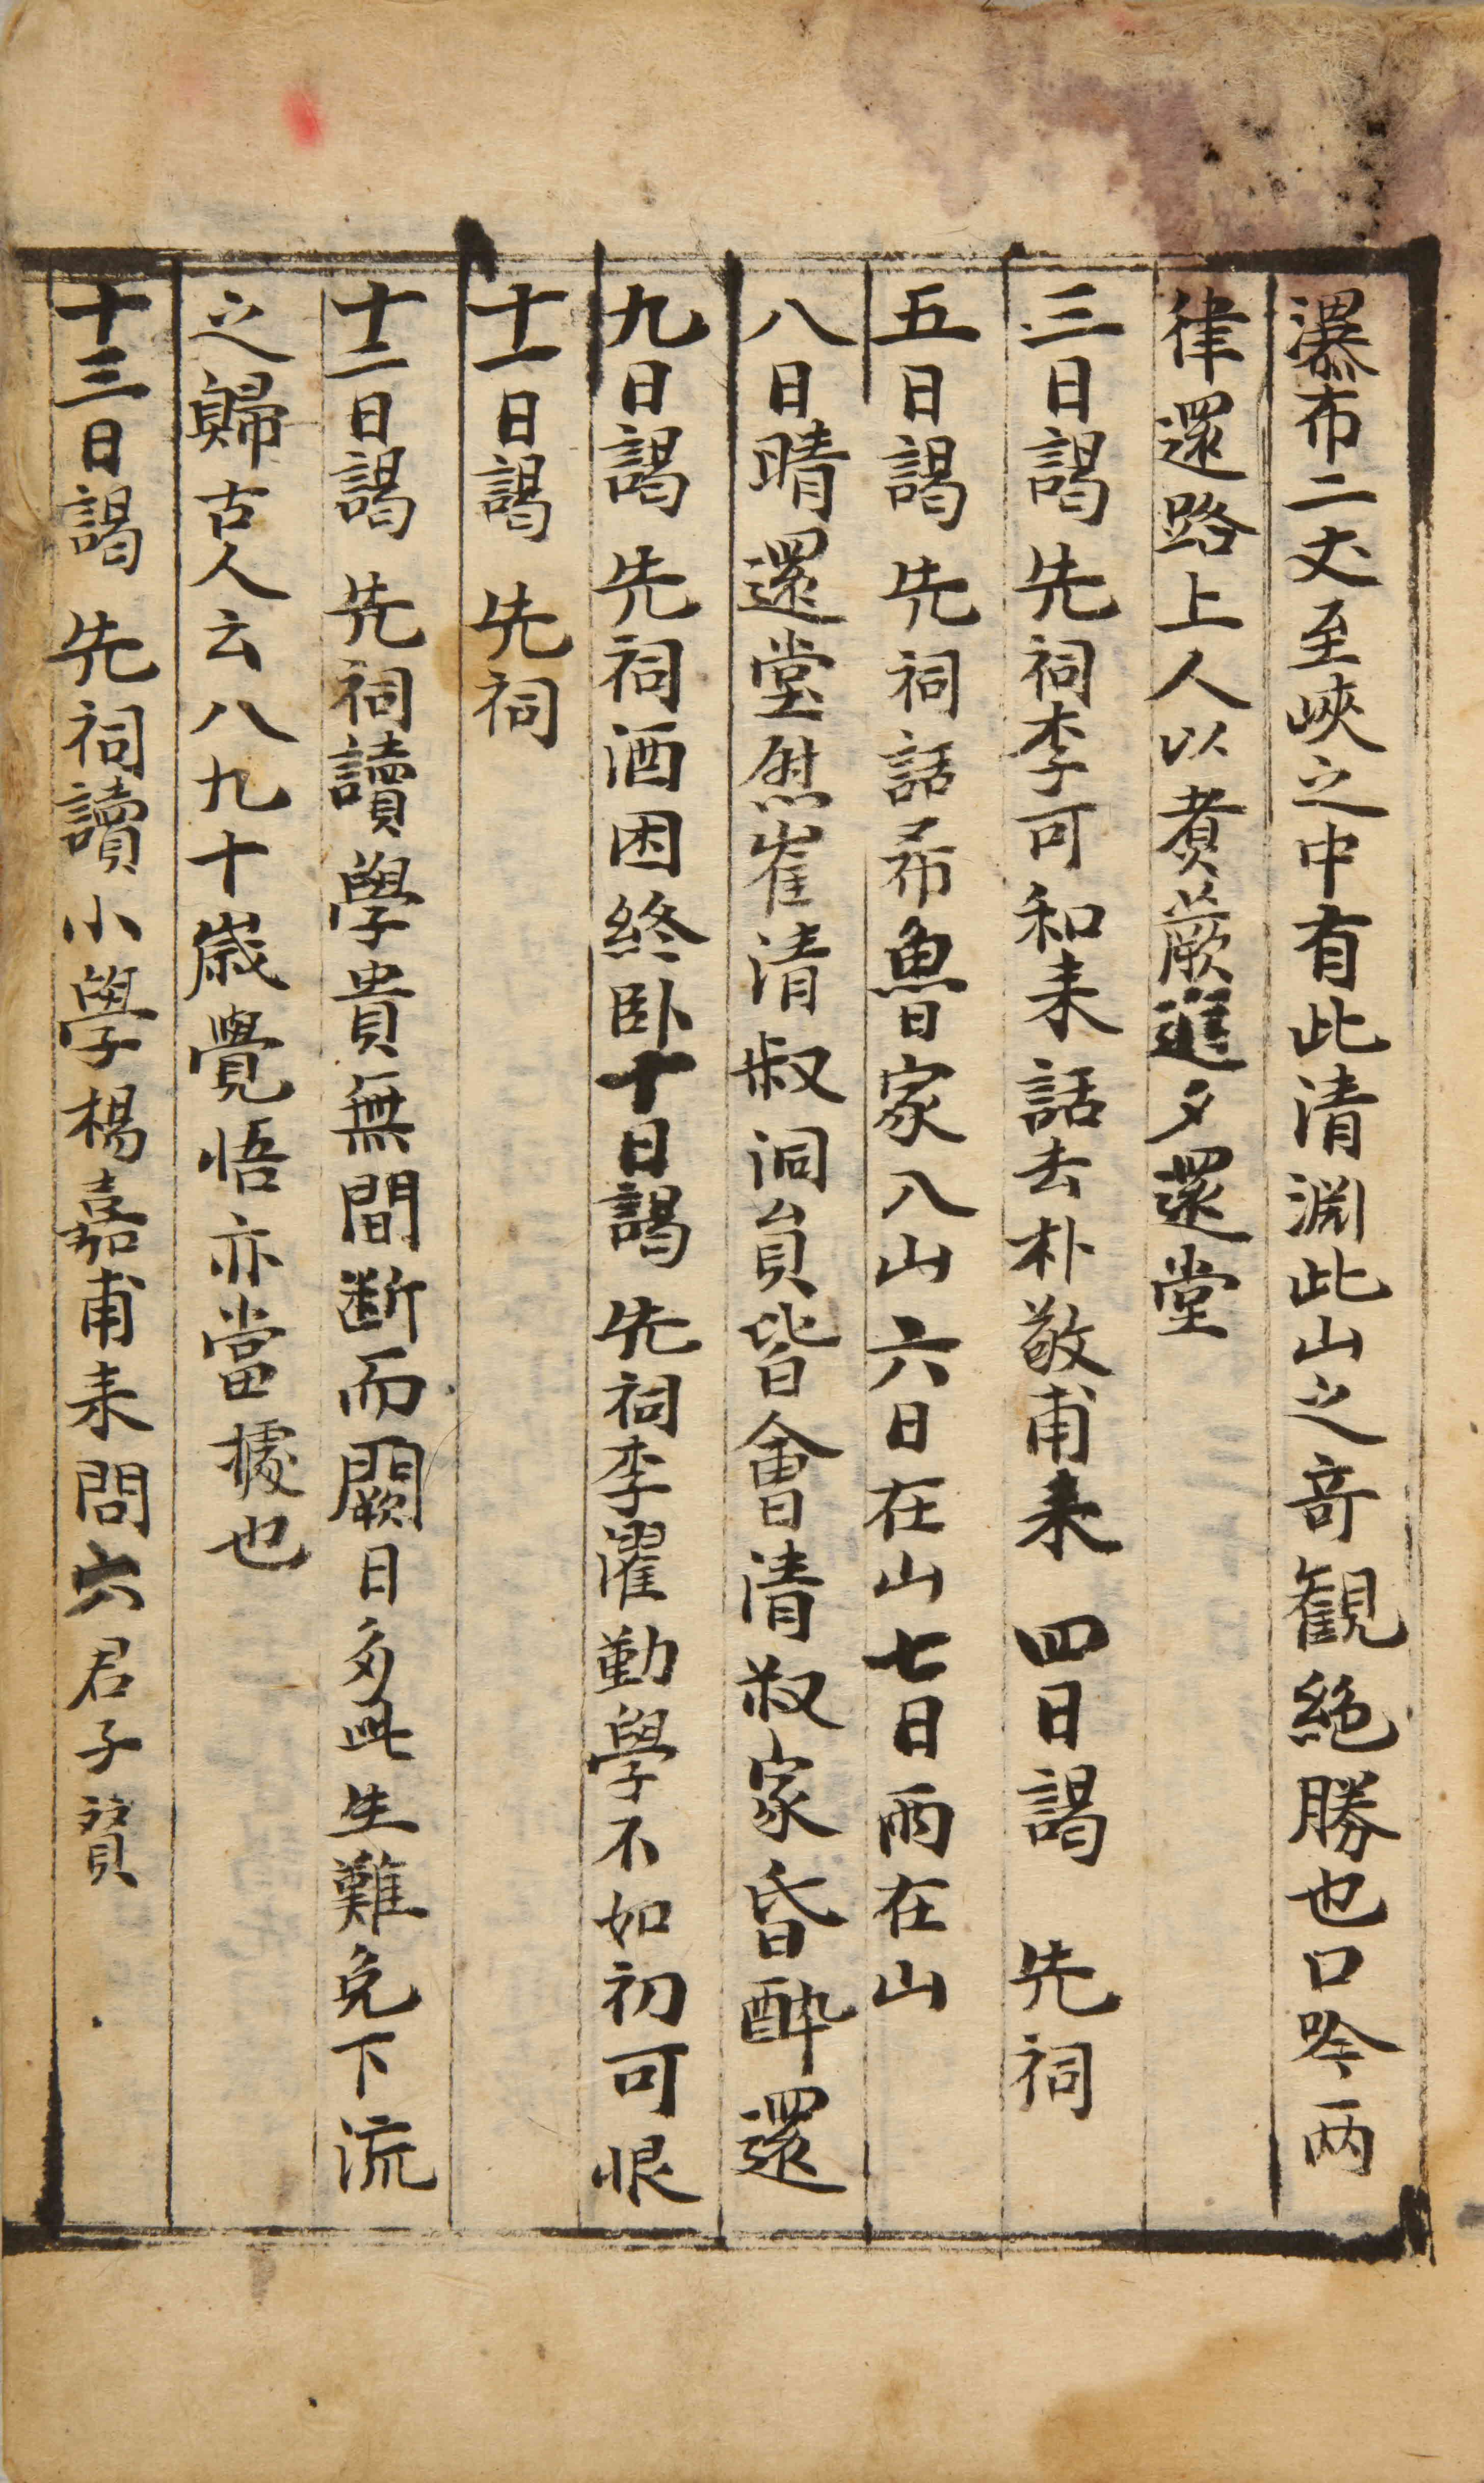 瀑布二丈至峽之中有此清淵此山之竒觀絶勝也口吟两
律還路上人以煮蕨進夕還堂
三日謁 先祠李可和来話去朴敬甫来 四日謁 先祠
五日謁 先祠話希魯家入山六日在山七日雨在山
八日晴還堂慰崔清叔洞員皆會清叔家昏醉還
九日謁 先祠酒困終卧十日謁 先祠李濯勤學不如初可恨
十一日謁 先祠
十二日謁 先祠讀學貴無間断而闕日多此生難免下流
之歸古人云八九十歳覺悟亦當據也
十三日謁 先祠讀小學楊嘉甫来問六君子賛